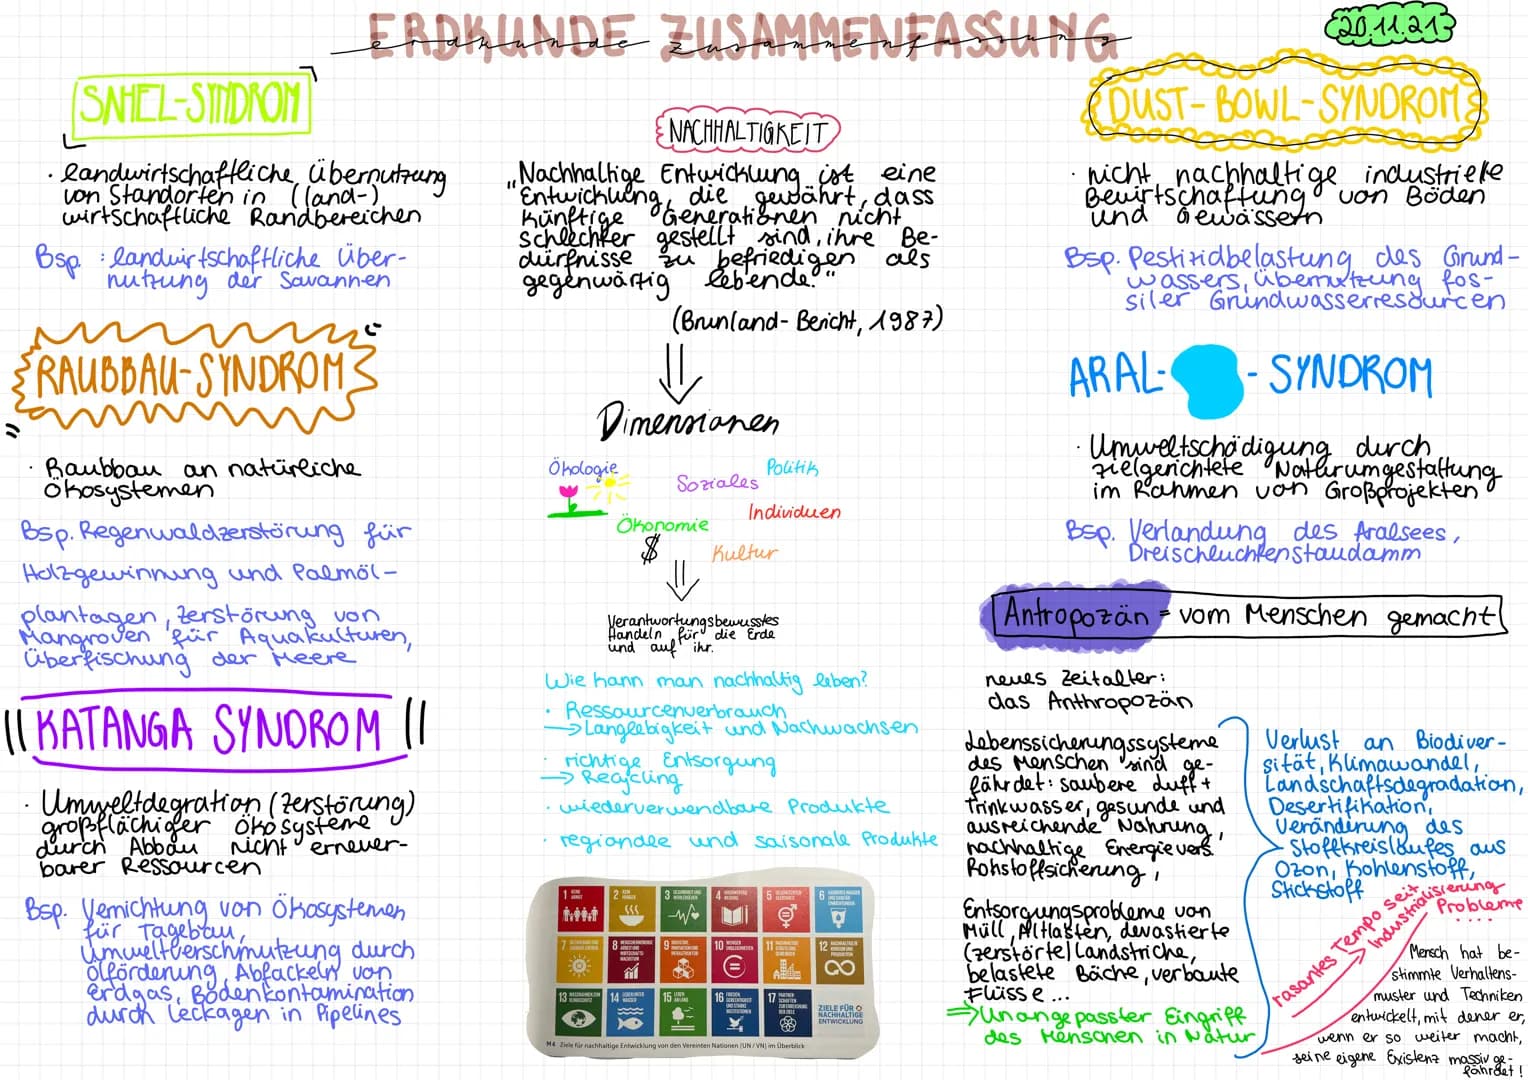 ERDKUNDE ZUSAMMENFASSUNG
erdkunde zusammenfassung
20.11.21
SAHEL-SYNDROM
· landwirtschaftliche Übernutzung
von Standorten in (land-)
wirtschaftliche Randbereichen
Bsp.: landwirtschaftliche Über-
nutzung der Savannen
RAUBBAU-SYNDROM
· Raubbau an natürliche
Ökosystemen
Bsp. Regenwaldzerstörung für
Holzgewinnung und Palmöl-
plantagen, Zerstörung von
Mangroven für Aquakulturen,
Überfischung der Meere
KATANGA SYNDROM
· Umweltdegration (Zerstörung)
großflächiger Ökosysteme
durch Abbau nicht erneuer-
barer Ressourcen
Bsp. Vernichtung von Ökosystemen
für Tagebau,
Umweltverschmutzung durch
Ölförderung, Abfackeln von
Erdgas, Bodenkontamination
durch Leckagen in Pipelines
NACHHALTIGKEIT
„Nachhaltige Entwicklung ist eine
Entwicklung, die gewährt, dass
künftige Generationen nicht
schlechter gestellt sind, ihre Be-
dürfnisse zu befriedigen als
gegenwärtig lebende."
(Brunland-Bericht, 1987)
Dimensionen
Ökologie
Soziales
Politik
Ökonomie
Individuen
$
Kultur
Verantwortungsbewusstes
Handeln für die Erde
und auf ihr.
Wie kann man nachhaltig leben?
· Ressourcenverbrauch
→ Langlebigkeit und Nachwachsen
· richtige Entsorgung
→ Recycling
· wiederverwendbare Produkte
· regionale und saisonale Produkte
1 KEINE ARMUT
2 KEIN HUNGER
3 GESUNDHEIT UND WOHLERGEHEN
4 HOCHWERTIGE BILDUNG
5 GESCHLECHTER-GLEICHHEIT
6 SAUBERES WASSER UND SANITÄR-EINRICHTUNGEN
7 BEZAHLBARE UND SAUBERE ENERGIE
8 MENSCHENWÜRDIGE ARBEIT UND WIRTSCHAFTS-WACHSTUM
9 INDUSTRIE, INNOVATION UND INFRASTRUKTUR
10 WENIGER UNGLEICHHEITEN
11 NACHHALTIGE STÄDTE UND GEMEINDEN
12 NACHHALTIGE/R KONSUM UND PRODUKTION
13 MASSNAHMEN ZUM KLIMASCHUTZ
14 LEBEN UNTER WASSER
15 LEBEN AN LAND
16 FRIEDEN, GERECHTIGKEIT UND STARKE INSTITUTIONEN
17 PARTNER-SCHAFTEN ZUR ERREICHUNG DER ZIELE
ZIELE FÜR
NACHHALTIGE
ENTWICKLUNG
M4 Ziele für nachhaltige Entwicklung von den Vereinten Nationen (UN / VN) im Überblick
DUST-BOWL-SYNDROM
· nicht nachhaltige industrielle
Bewirtschaftung von Böden
und Gewässern
Bsp. Pestizidbelastung des Grund-
wassers, Übernutzung fos-
siler Grundwasserresourcen
ARAL- - SYNDROM
· Umweltschädigung durch
zielgerichtete Naturumgestaltung
im Rahmen von Großprojekten
Bsp. Verlandung des Aralsees,
Dreischluchtenstaudamm
Antropozän = vom Menschen gemacht
neues Zeitalter:
das Anthropozän
Lebenssicherungssysteme
des Menschen sind ge-
fährdet: saubere Luft +
Trinkwasser, gesunde und
ausreichende Nahrung,
nachhaltige Energievers.
Rohstoffsicherung,
Entsorgungsprobleme von
Müll, Altlasten, devastierte
(zerstörte) Landstriche,
belastete Bäche, verbaute
Flüsse...
⇒ Unangepasster Eingriff
des Menschen in Natur
Verlust an Biodiver-
sität, Klimawandel,
Landschaftsdegradation,
Desertifikation,
Veränderung des
Stoffkreislaufes aus
Ozon, Kohlenstoff,
Stickstoff
rasantes Tempo seit
Industrialisierung
Probleme
....
Mensch hat be-
stimmte Verhaltens-
muster und Techniken
entwickelt, mit dener er,
wenn er so weiter macht,
seine eigene Existenz massiv ge-
fährdet!